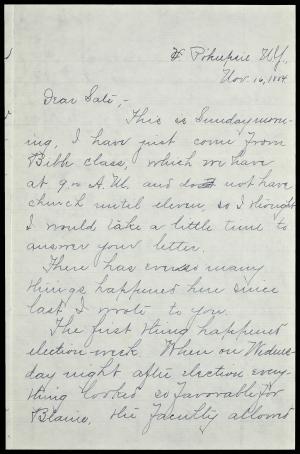 Pokupsie N.Y.,
Nov. 16, 1884.
Dear Sate,-
This is Sunday morn-
ing, I have just come from
Bible class, which we have
at 9.00 A.M. and do not have
church until eleven, so I thought
I would take a little time to
answer your letter.
There has ever so many
things happened here since
last I wrote to you.
The first thing happened
election week. When on Wednes-
day night after election every-
thing looked so favorable for
Blaine, the Faculty allowed